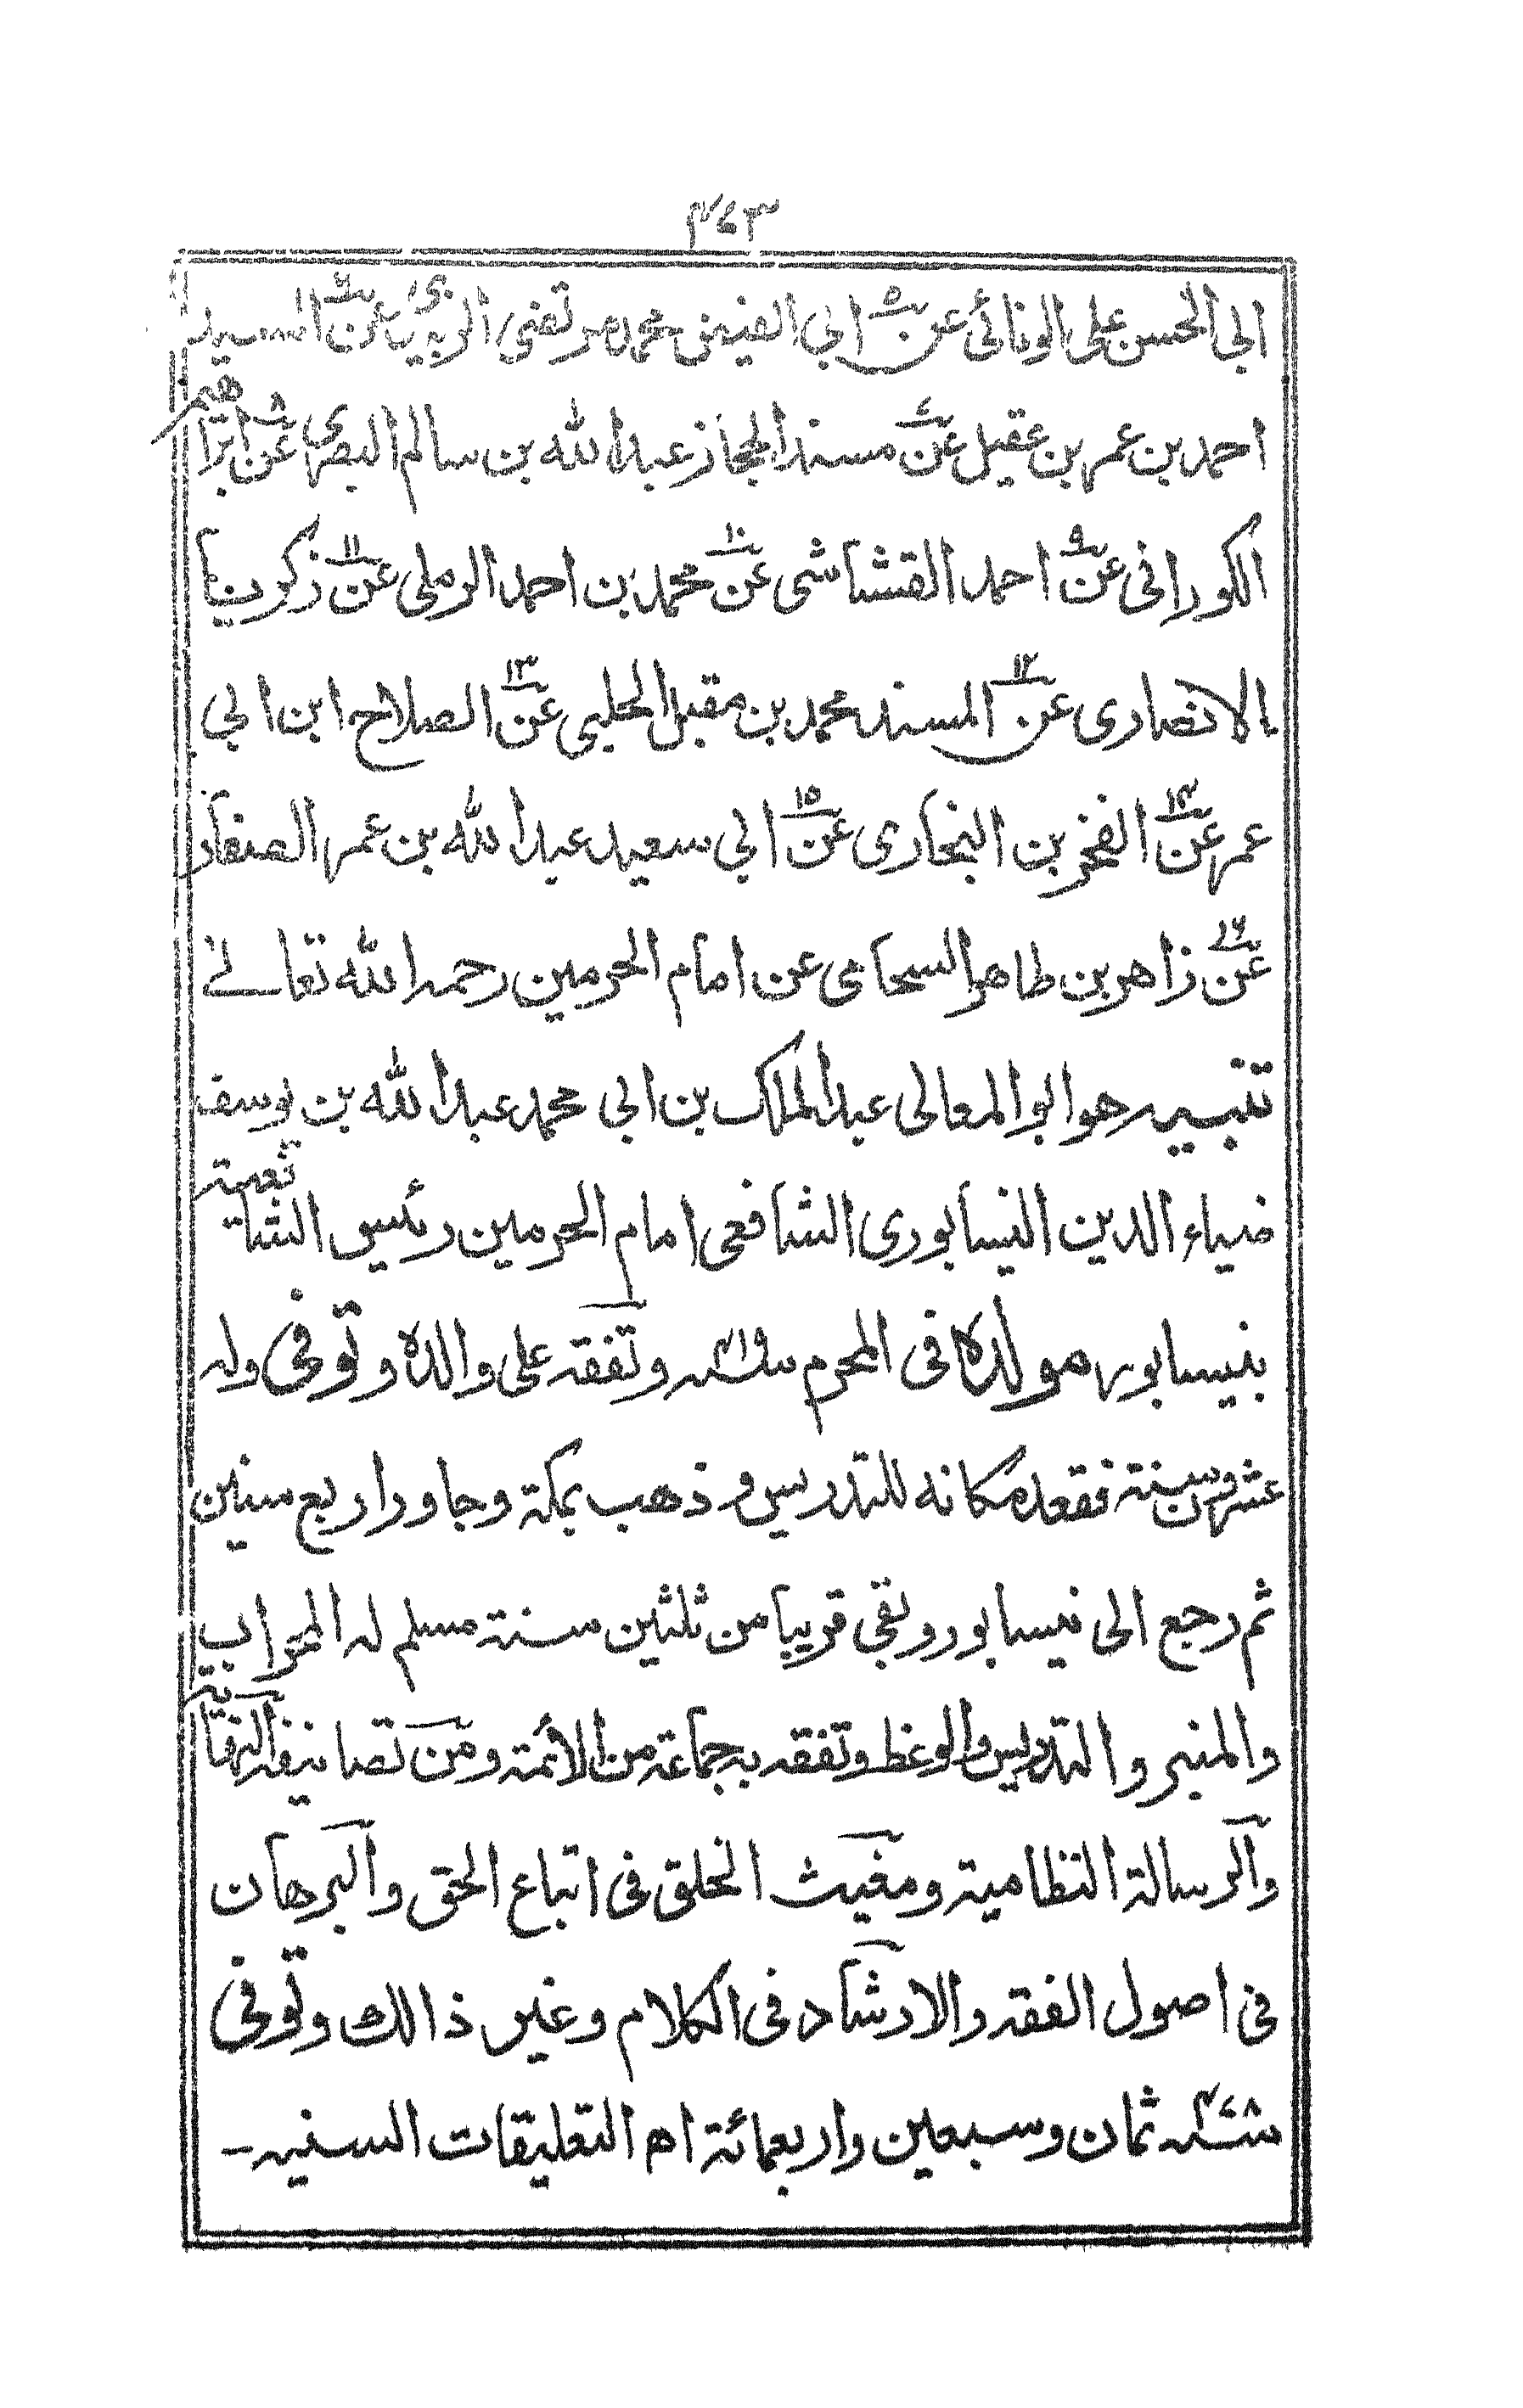 ٤٧٣
ابى الحسن على الونائى عن٥ ابى الفيض محمد مرتضى الزبيدى عن٦ السيد
احمد بن عمر بن عقيل عن٧ مسند الحجاز عبد الله بن سالم البصرى عن٨ ابراهيم
الكورانى عن٩ احمد القشاشى عن١٠ محمد بن احمد الرملى عن١١ زكريا
الانصارى عن١٢ المسند محمد بن مقبل الحلبى عن١٣ الصلاح ابن ابى
عمر عن١٤ الفخر بن البخارى عن١٥ ابى سعيد عبد الله بن عمر الصفار
عن١٦ زاهر بن طاهر السحامى عن امام الحرمين رحمه الله تعالىٰ
تنبيه هو ابو المعالى عبد الملك بن ابى محمد عبد الله بن يوسف
ضياء الدين النيسابورى الشافعى امام الحرمين رئيس الشافعية
بنيسابور مولده فى المحرم ٤١٩ سنه وتفقه على والده وتوفى وله
عشرون سنة فقعد مكانه للتدريس و ذهب بمكة وجاور اربع سنين
ثم رجع الى نيسابور وبقى قريبا من ثلثين سنة مسلم له المحراب
والمنبر والتدريس والوعظ وتفقه به جماعة من الائمة ومن تصانيفه النهاية
والرسالة النظامية ومغيث الخلق فى اتباع الحق والبرهان
فى اصول الفقه والارشاد فى الكلام وغير ذالك وتوفى
٤٧٨ سنه ثمان وسبعين واربعمائة اه التعليقات السنيه -